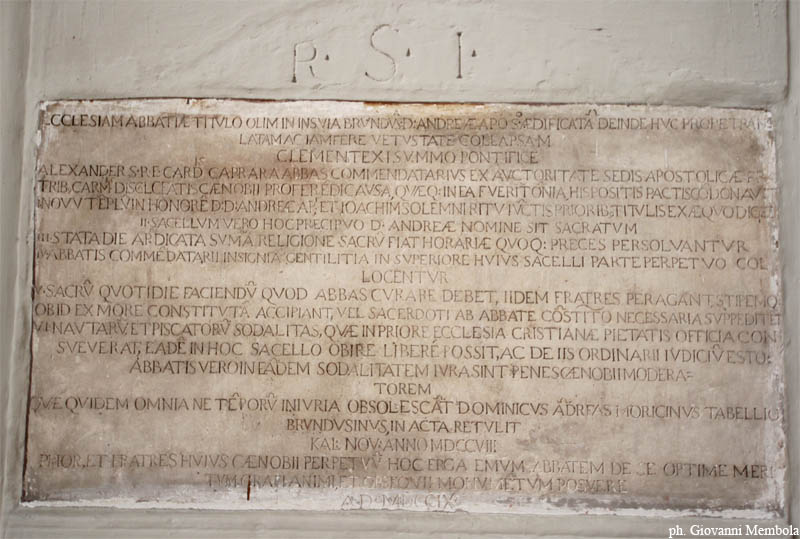 R · S · I ·
ECCLESIAM ABBATIÆ TITVLO OLIM IN INSVIA BRVNDVS: D: ANDREÆ APO ÆDIFICATĀ DEINDE HVC PROPE TRANS
LATAM AC IAM FERE VETVSTATE COLLAPSAM
CLEMENTE XI SVMMO PONTIFICE
ALEXANDER S·R·E CARD CAPRARA ABBAS COMMENDATARIUS EX AVCTORITATE SEDIS APOSTOLICÆ
TRIB, CARM DISCLCIATIS CÆNOBII PROFEREDI CAVSA, QVÆQ: IN EA FVERIT ONIA, HIS POSITIS PACTISCO DONAVIT
NOVV TEPLV IN HONORĒ D·D: ANDREÆ AP, ET IOACHIM SOLEMNI RITV IVCTIS PRIORIB, TITVLIS EX ÆQVO DICET
II·SACELLVM VERO HOC PRECIPVO D· ANDREÆ NOMINE SIT SACRATUM
III·STATA DIE AP DICATA SVMĀ RELIGIONE SACRŪ FIAT HORARIÆ QVOQ: PRECES PERSOLVANTVR
ABBATIS COMMĒDATARII INSIGNIA GENTILITIA IN SVPERIORE HVIVS SACELLI PARTE PERPETVO COL
LOCENTVR
V·SACRŪ QUOTIDIE FACIENDŪ QUOD ABBAS CVRARE DEBET, IIDEM FRATRES PERAGANT, STIPEMQ
OBID EX MORE CONSTITVTĀ ACCIPIANT, VEL SACERDOTI AB ABBATE CŌSTITO NECESSARIA SVPPEDITET
VI·NAVTARŪ ET PISCATORŪ SODALITAS, QVÆ IN PRIORE ECCLESIA CRISTIANÆ PIETATIS OFFICIA CON
SVEVERAT, EADĒ IN HOC SACELLO OBIRE LIBERĒ POSSIT, AC DE IIS ORDINARII IVDICIŪ ESTO:
ABBATIS VERO IN EĀDEM SODALITATEM IVRA SINT PENES CÆNOBII MODERA=
TOREM
QVÆ QVIDEM OMNIA NE TĒPORŪ INIVRIA OBSOLESCĀT DOMINICVS ĀDREAS MORICINVS TABELLIO
BRVNDVSINVS, IN ACTA RETVLIT
KAL: NOV: ANNO MDCCVIII
PRIOR, ET FRATRES HVIVS CÆNOBII PERPETVŪ HOC ERGA EMVM ABBATEM DE SE OPTIME MERI
TVM GRATI ANIMI, ET MONVMĒTVM POSVERE
A·D·MDCCIX
ph. Giovanni Membola